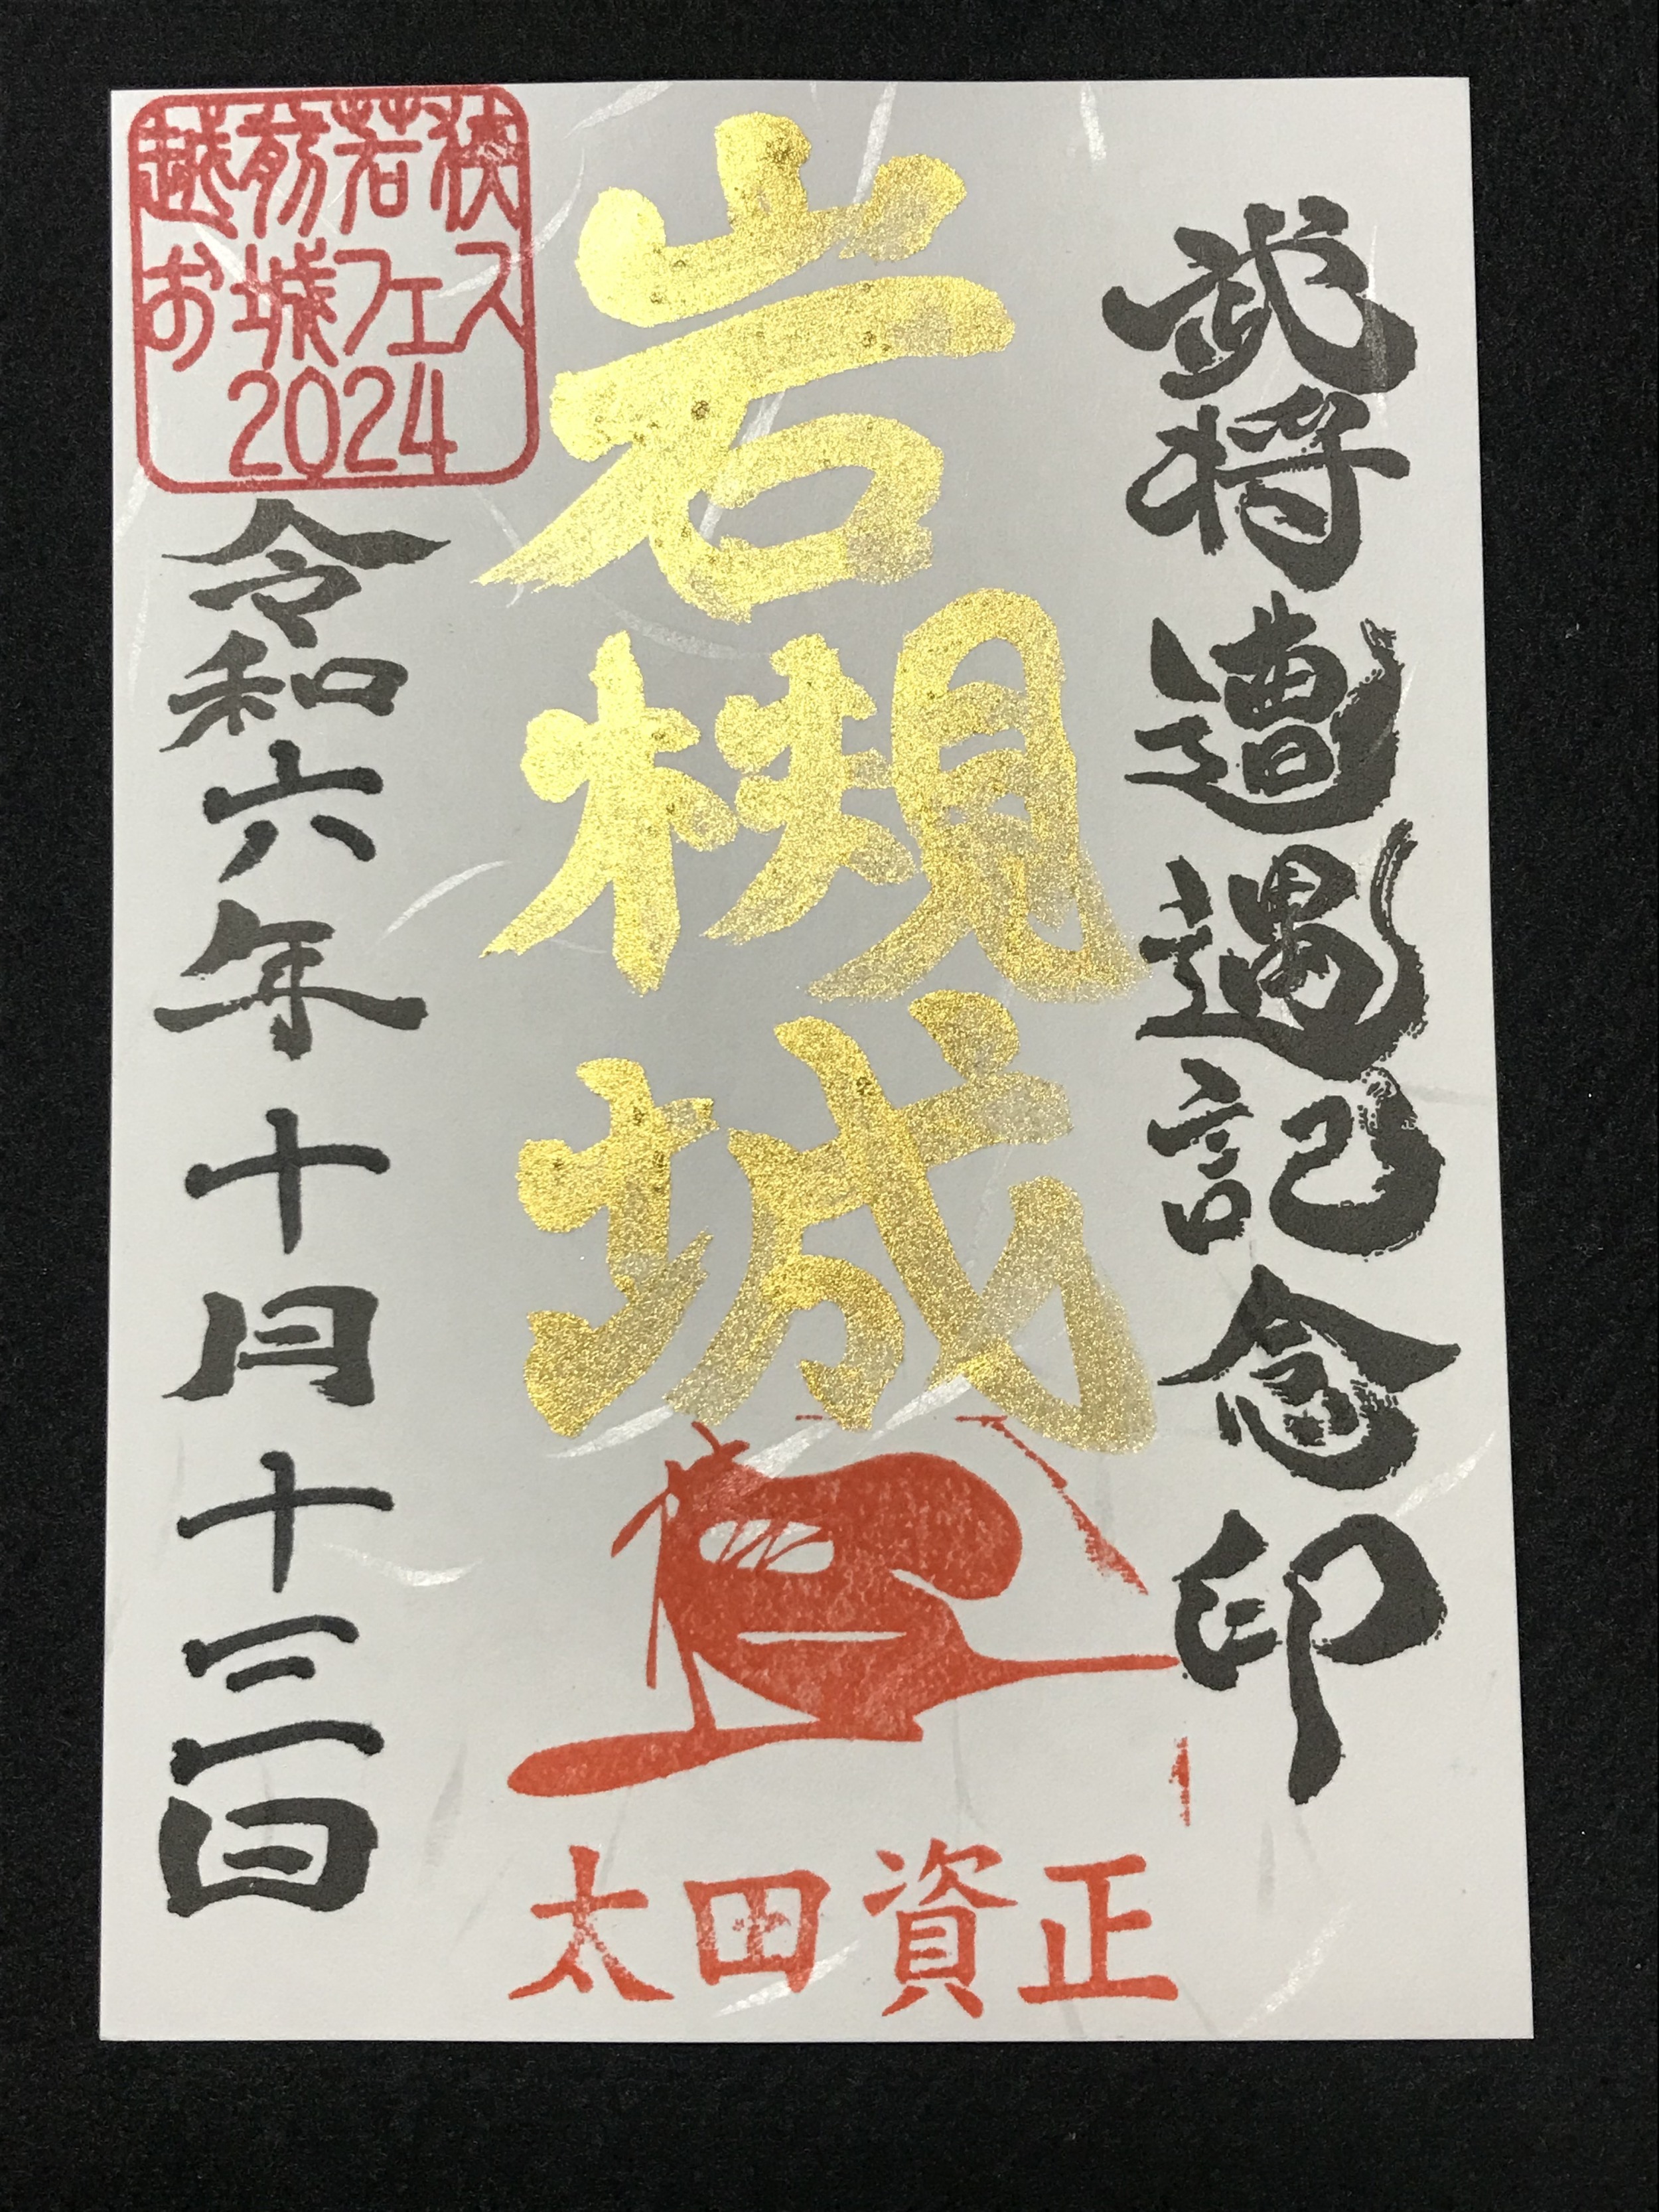 武将遭遇記念印
岩槻城
太田資正
越前若狭
お城フェス
2024
令和六年十月十三日